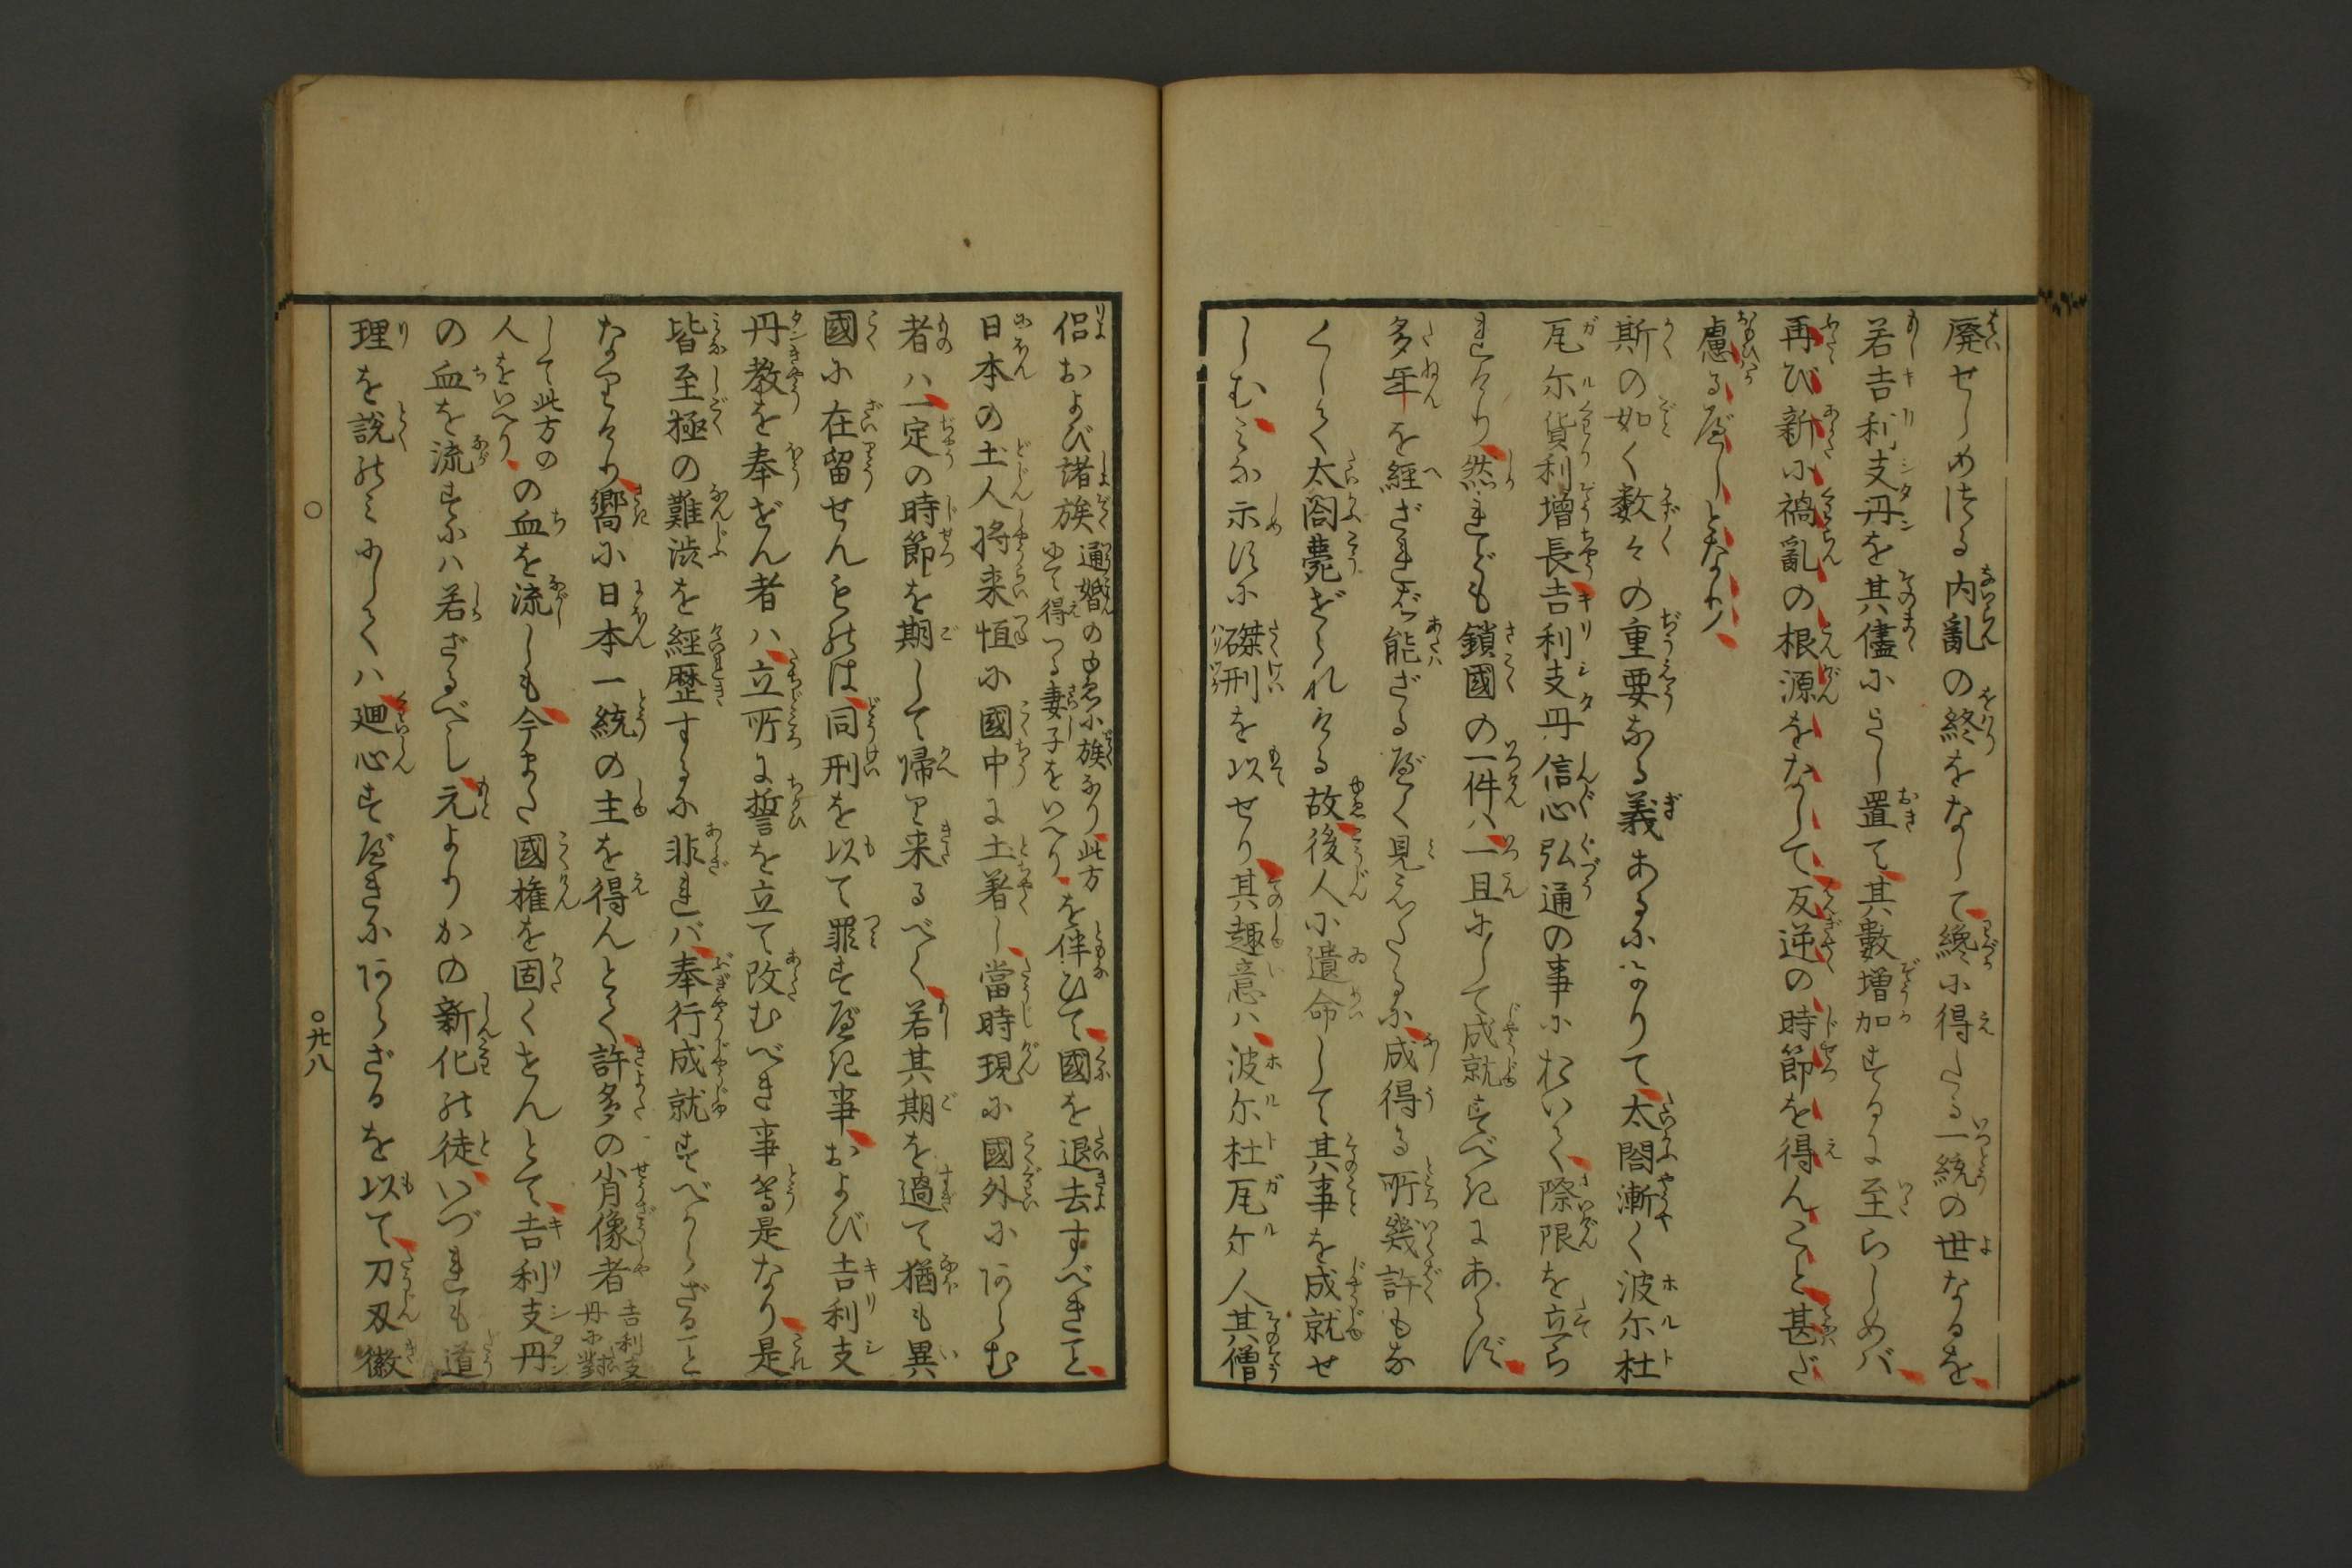 廃せしめける内亂の終をなして纔小得たる一統の世なるを
若吉利支丹を其儘小さし置て其數増加するに至らしめバ
再び新小禍亂の根源をなして反逆の時節を得んこと甚だ
慮るべしとなり
斯の如く数々の重要なる義あるによりて太閤漸く波尓杜
瓦尓貨利増長吉利支丹信心弘通の事小おいて際限を立ら
れけり然れども鎖國の一件ハ一旦にして成就すべきにあらず
多年を經ざれバ能ざるべく見えたる小成得る所幾許もな
くして太閤薨ぜられける故後人小遺命して其事を成就せ
しむみな示す小磔刑を以せり其趣意ハ波尓杜瓦尓人其僧
侶および諸族通婚のゆゑ小族なり此方
にて得つる妻子をいへりを伴ひて國を退去すべきこと
日本の土人将来恒小國中に土著し當時現小國外小あらむ
者ハ一定の時節を期して帰り来るべく若其期を過て猶も異
國小在留せんものは同刑を以て罪すべき事および吉利支
丹教を奉ぜん者ハ立所に誓を立て改むべき事等是なり是
皆至極の難渋を經歴するに非れバ奉行成就すべからざること
なりけり嚮小日本一統の主を得んとて許多の肖像者吉利支
丹小
して此方の
人をいへりの血を流しも今また國權を固くせんとて吉利支丹
の血を流す小ハ若ざるべし元よりかの新化の徒いづれも道
理を説のみにしてハ廻心すべき小あらざるを以て刀刄徽
○廿八